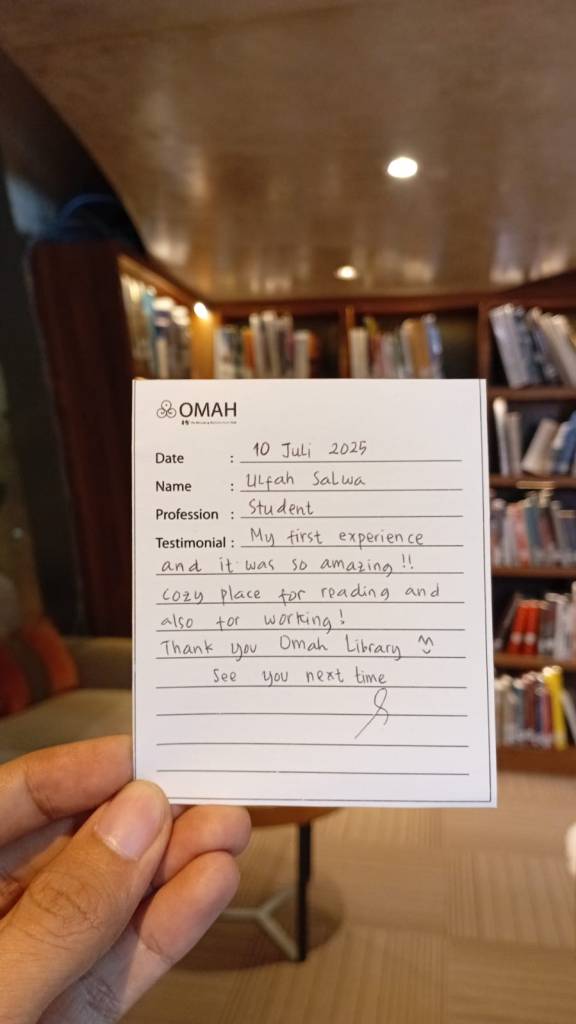 OMAH
Date : 10 Juli 2025
Name : Ulfah Salwa
Profession : Student
Testimonial : My first experience
and it was so amazing!!
cozy place for reading and
also for working!
Thank you Omah Library
See you next time